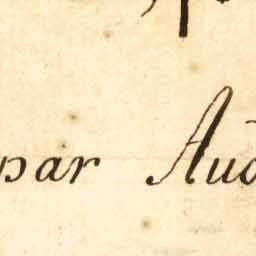 par Aud